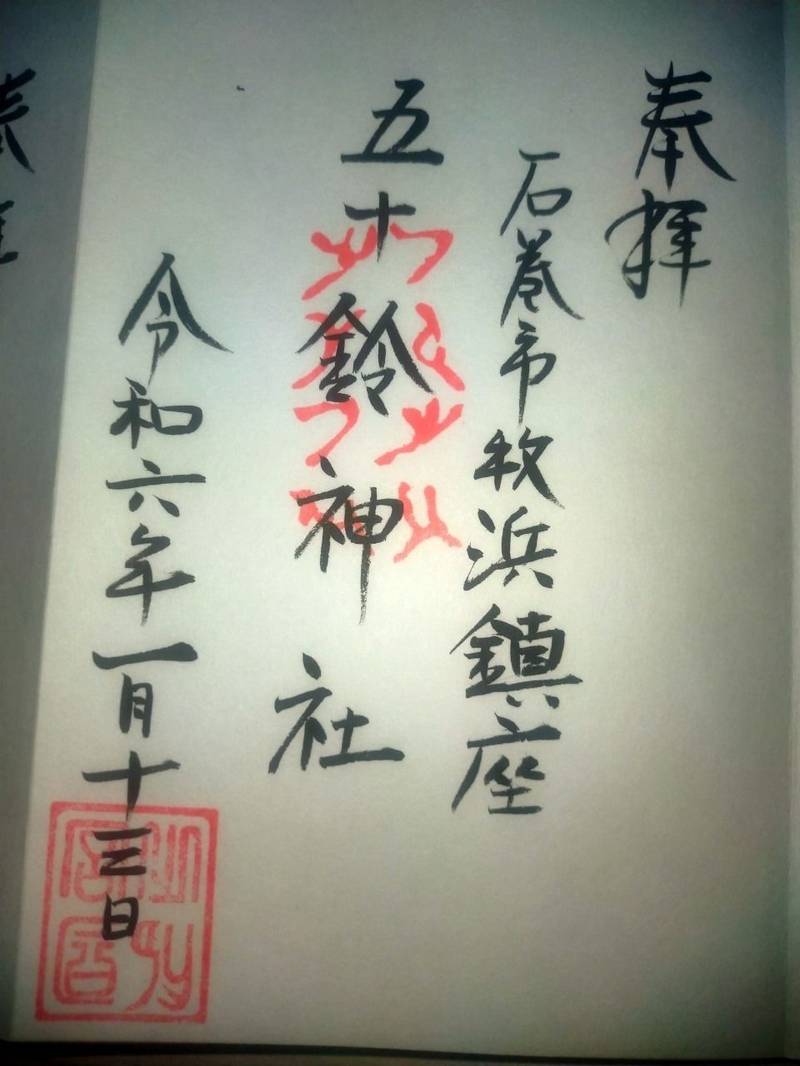 奉拝
石巻市牧浜鎮座
五十鈴神社
令和六年一月十三日